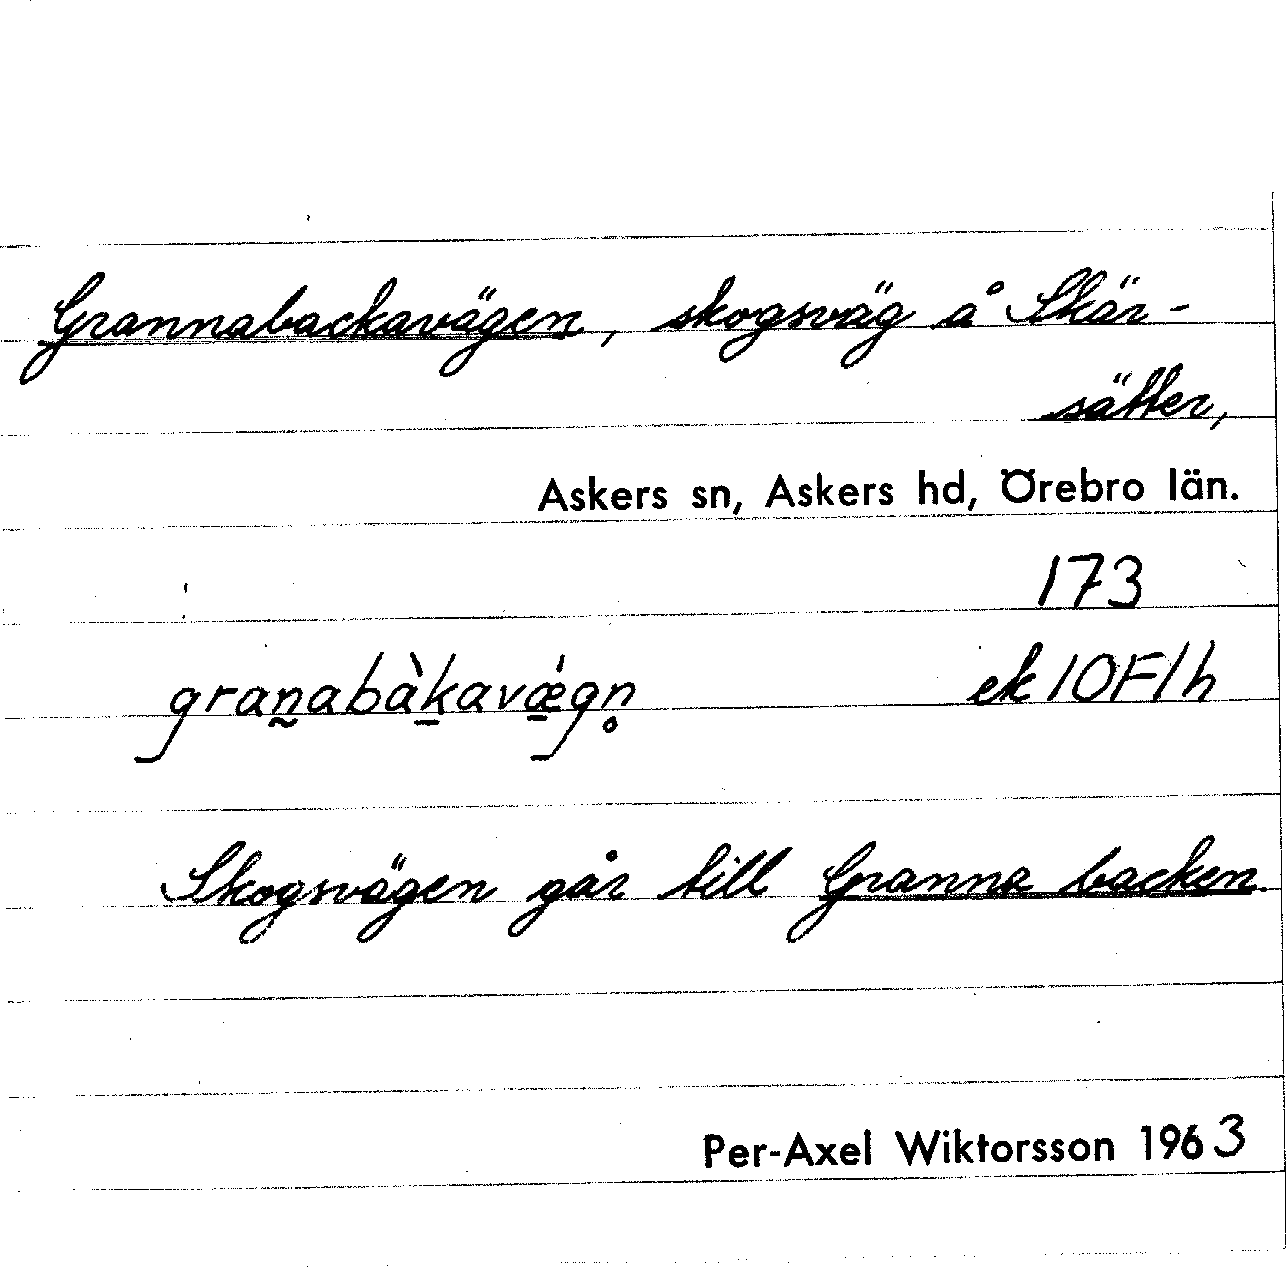 Grannabackavägen, skogsväg å Skär-
sätter,
Askers sn, Askers hd, Örebro län.
173
gran̰abàk̠avǽ̠gn̥ ek 10F1h
Skogsvägen går till Granna backen
Per-Axel Wiktorsson 1963